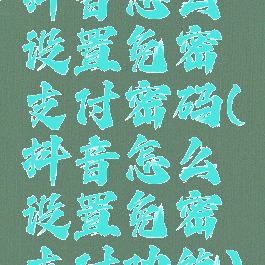 抖音怎么
设置免密
支付密码(
抖音怎么
设置免密
支付功能)